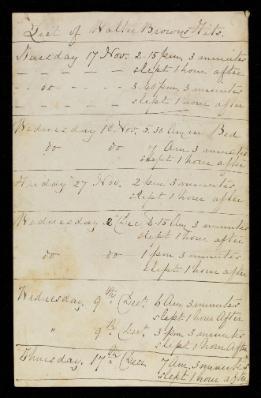 List of Walter Browns Fits.
Tuesday 17 Nov. 2.15 pm, 3 minutes
slept 1 hour after
- - do - - 3. pm, 3 minutes
slept 1 hour after
Wednesday 18 Nov. 5.30 Am in Bed
do do 7 Am 3 minutes
slept 1 hour after
27 Nov. 2 pm 3 minutes,
slept 1 hour after
Wednesday, 2 Dec. 2.15 Am, 3 minutes
slept 1 hour after
do do 1 pm 3 minutes
slept 1 hour after
Wednesday 9th Decr. 6 Am 3 minutes
slept 1 hour After
" 9th Decr. 3 pm, 3 minutes
slept 1 hour After
Thursday, 17th Decr 7 Am, 3 minutes
slept 1 hour after